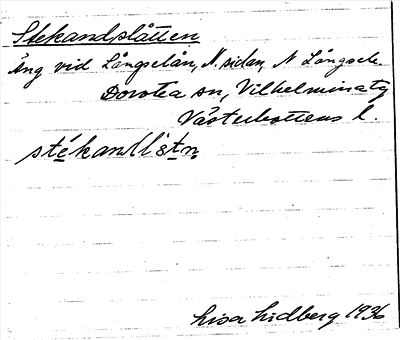 Stekandslåtten
Äng vid Långselån, N. sidan, N Långsele
Dorotea sn, Vilhelmina tg
Västerbottens l.
Lisa Lidberg 1936